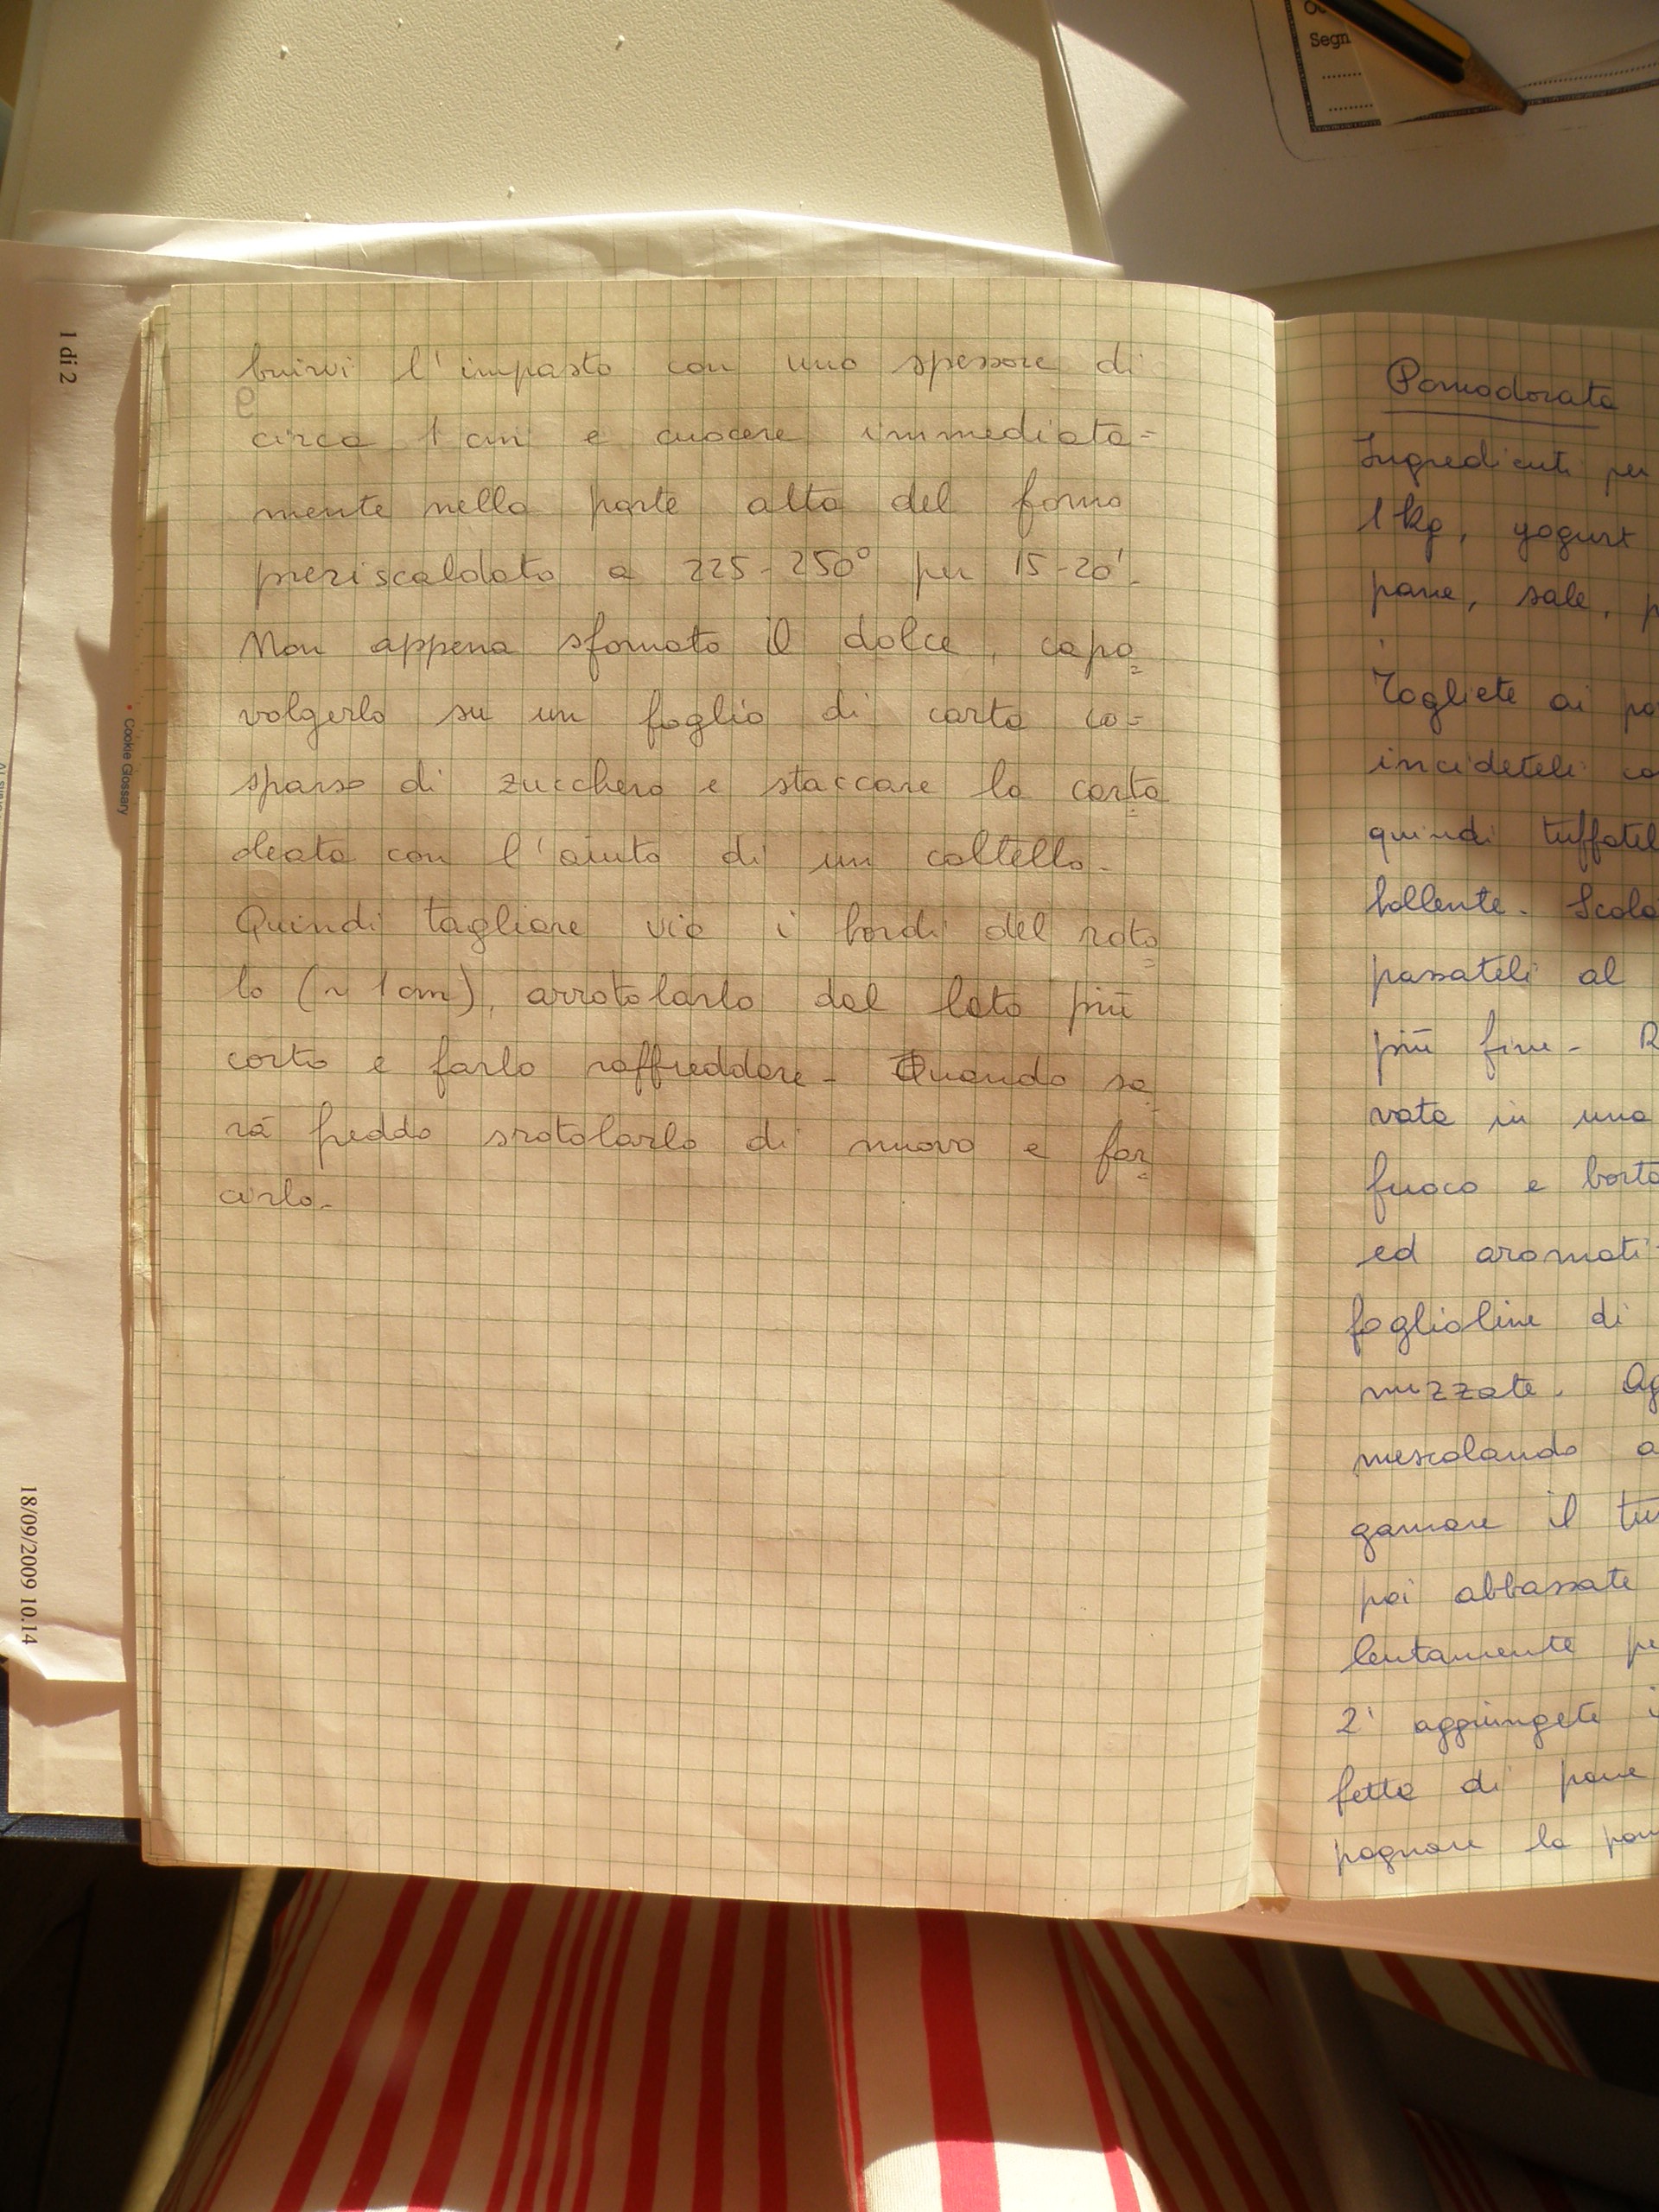 buirvi l'impasto con uno spessore di
e
circa 1 cm e cuocere immediata=
mente nella parte alta del forno
preriscaldato a 225-250° per 15-20'.
Non appena sfornato il dolce, capo=
volgerlo su un foglio di carta co=
sparso di zucchero e staccare la carta=
oleata con l'aiuto di un coltello.
Quindi tagliare via i bordi del roto=
lo (~ 1 cm), arrotolarlo dal lato più
corto e farlo raffreddare - Quando sa=
rà freddo srotolarlo di nuovo e far=
cirlo.
Pomodorata
Ingredienti per
1 kg, yogurt
pane, sale, p
Togliete ai po
incideteli co
quindi tuffatel
bollente. Scola
passateli al
più fine - R
vate in una
fuoco e
ed aromati
foglioline di
nuzzate. Ag
mescolando a
gamare il tu
poi abbassate
lentamente pe
2' aggiungete i
fette di pane
pagnare la pom
1 di 2
Cookie Glossary
18/09/2009 10.14
Segn